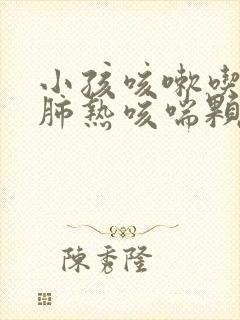 小孩咳嗽喫
肺熱咳喘顆
陳秀隆